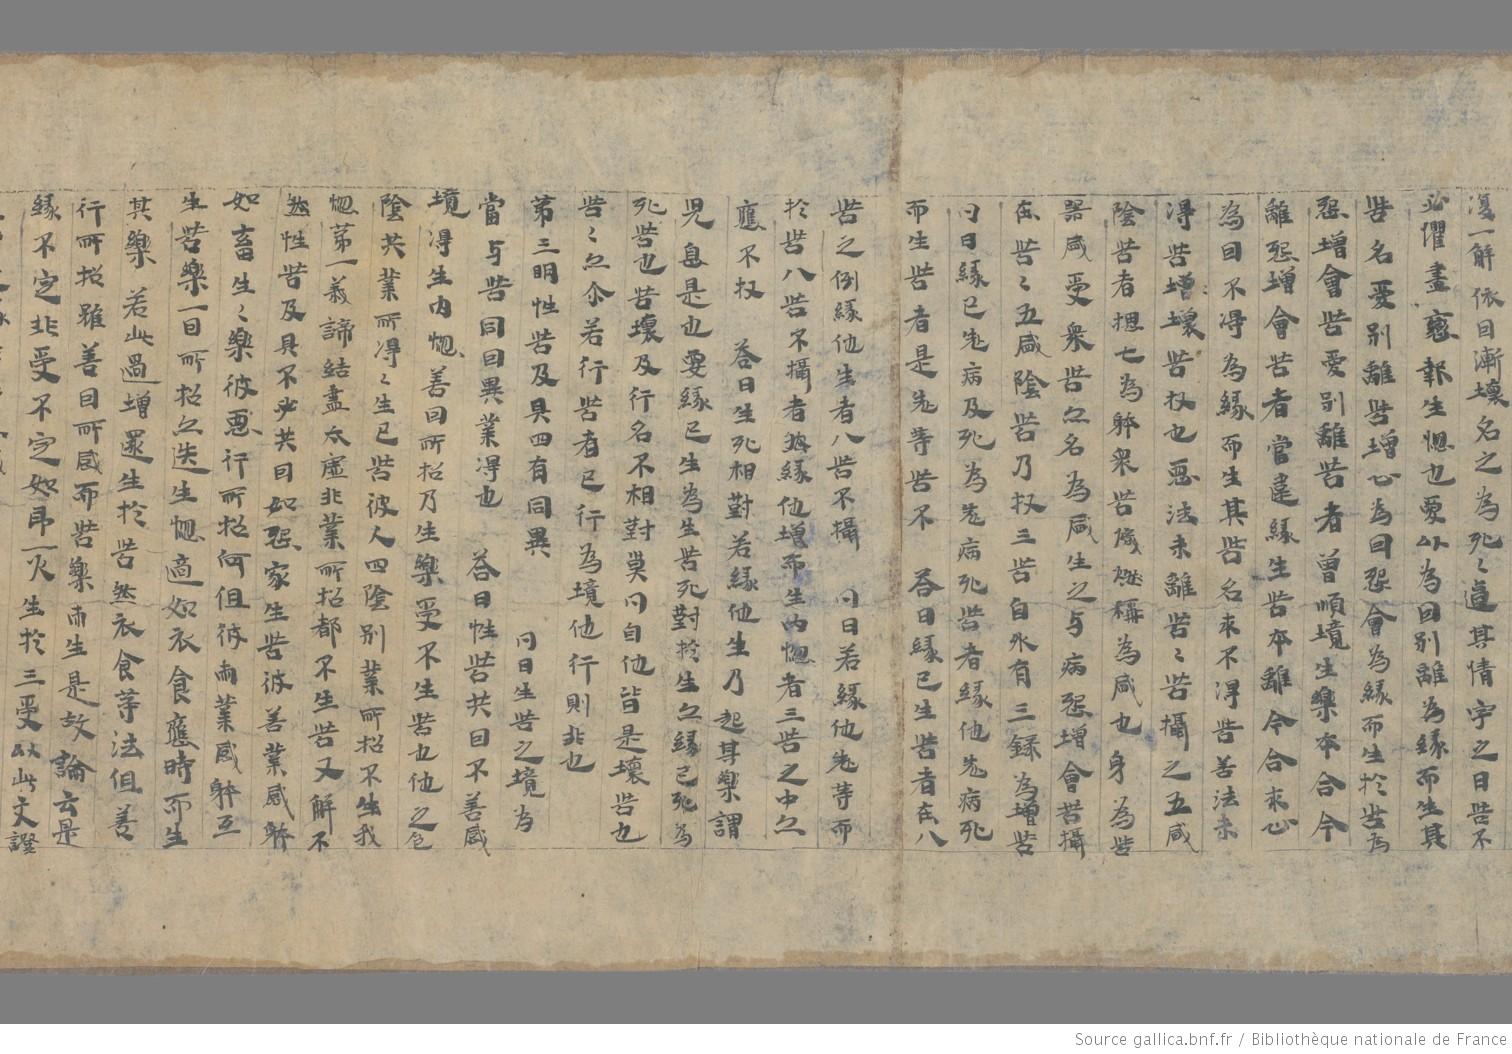 復一解依因漸壞名之為死〻道其情字之日苦不
必懼盡 報生惚也要以為因別離為緣而生其
苦名愛別離苦增心為因怨會為緣而生於苦為
怨增會苦愛別離苦者曾順境生樂本合今
離怨增會苦者當違緣生苦本離今合求心
為因不得為緣而生其苦名求不得苦善法未
得苦增壞苦收也惡法未離苦〻苦攝之五盛
陰苦者揔七為躰衆苦熾燃稱為盛也身為苦
器盛受衆苦亦名為盛生之与病怨增會苦攝
在苦〻五盛陰苦乃收三苦自外有三 為增苦
問曰緣已老病及死為老病死苦者緣他老病死
而生苦者是老等苦不 荅曰緣已生苦者在八
苦之例緣他生者八苦不攝 問曰若緣他老等而
於苦八苦不攝者緣他增而生内惚者三苦之中亦
應不收 荅曰生死相對若緣他生乃起其樂謂
兒息是也要緣已生為生苦死對於生亦緣已死為
死苦也苦壞及行名不相對莫問自他皆是壞苦也
苦〻亦尒若行苦者已行為境他行則非也
第三明性苦及具四有同異 問曰生苦之境為
當与苦同因異業得也 荅曰性苦共因不善感
境得生内惚善因所招乃生樂受不生苦也他之色
陰共業所得〻生已苦彼人四陰別業所招不生我
惚第一義諦結盡太虛非業所招都不生苦又解不
然性苦及具不必共因如怨家生苦彼善業感躰
如畜生〻樂彼惡行所招何但彼雨業感躰互
生苦樂一因所招亦迭生惚適如衣食應時而生
其樂若此過增還生於苦然衣食等法但善
行所招雖善因所感而苦樂雨生是故論云是
緣不定非受不定如苐一火生於三受以此文證
Source gallica.bnf.fr / Bibliothèque nationale de France